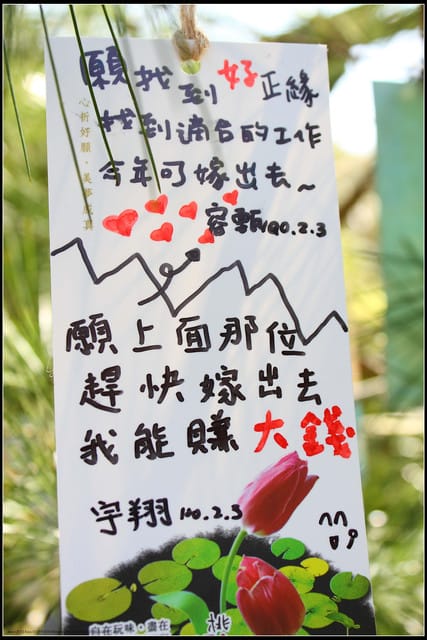 願找到好正緣
找到適合的工作
今年可嫁出去~
容甄 100.2.3
心祈好願・美夢成真
願上面那位
趕快嫁出去
我能賺大錢
宇翔 100.2.3
自在玩味・盡在